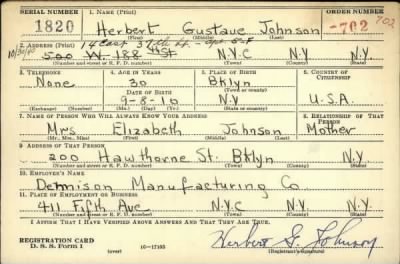 SERIAL NUMBER 1. NAME (Print) ORDER NUMBER
1820 Herbert Gustave Johnson 702 702
(First) (Middle) (Last)
2. ADDRESS (Print) 14 East 37th St. - Apt 5-F
10/30/40 500 W. 188 St N.Y.C N.Y
(Number and street or R. F. D. number) (Town) (County) (State)
3. TELEPHONE 4. AGE IN YEARS 5. PLACE OF BIRTH 6. COUNTRY OF CITIZENSHIP
None 30 Bklyn
DATE OF BIRTH (Town or county)
9-8-10 N.Y U.S.A.
(Exchange) (Number) (Mo.) (Day) (Yr.) (State or country)
7. NAME OF PERSON WHO WILL ALWAYS KNOW YOUR ADDRESS 8. RELATIONSHIP OF THAT PERSON
Mrs Elizabeth Johnson Mother
(Mr., Mrs., Miss) (First) (Middle) (Last)
9. ADDRESS OF THAT PERSON
200 Hawthorne St. Bklyn N.Y
(Number and street or R. F. D. number) (Town) (County) (State)
10. EMPLOYER'S NAME
Dennison Manufacturing Co
11. PLACE OF EMPLOYMENT OR BUSINESS
411 Fifth Ave N.Y.C N.Y
(Number and street or R. F. D. number) (Town) (County) (State)
I AFFIRM THAT I HAVE VERIFIED ABOVE ANSWERS AND THAT THEY ARE TRUE.
REGISTRATION CARD
D. S. S. Form 1 (over) 16—17105 Herbert G. Johnson
(Registrant's signature)